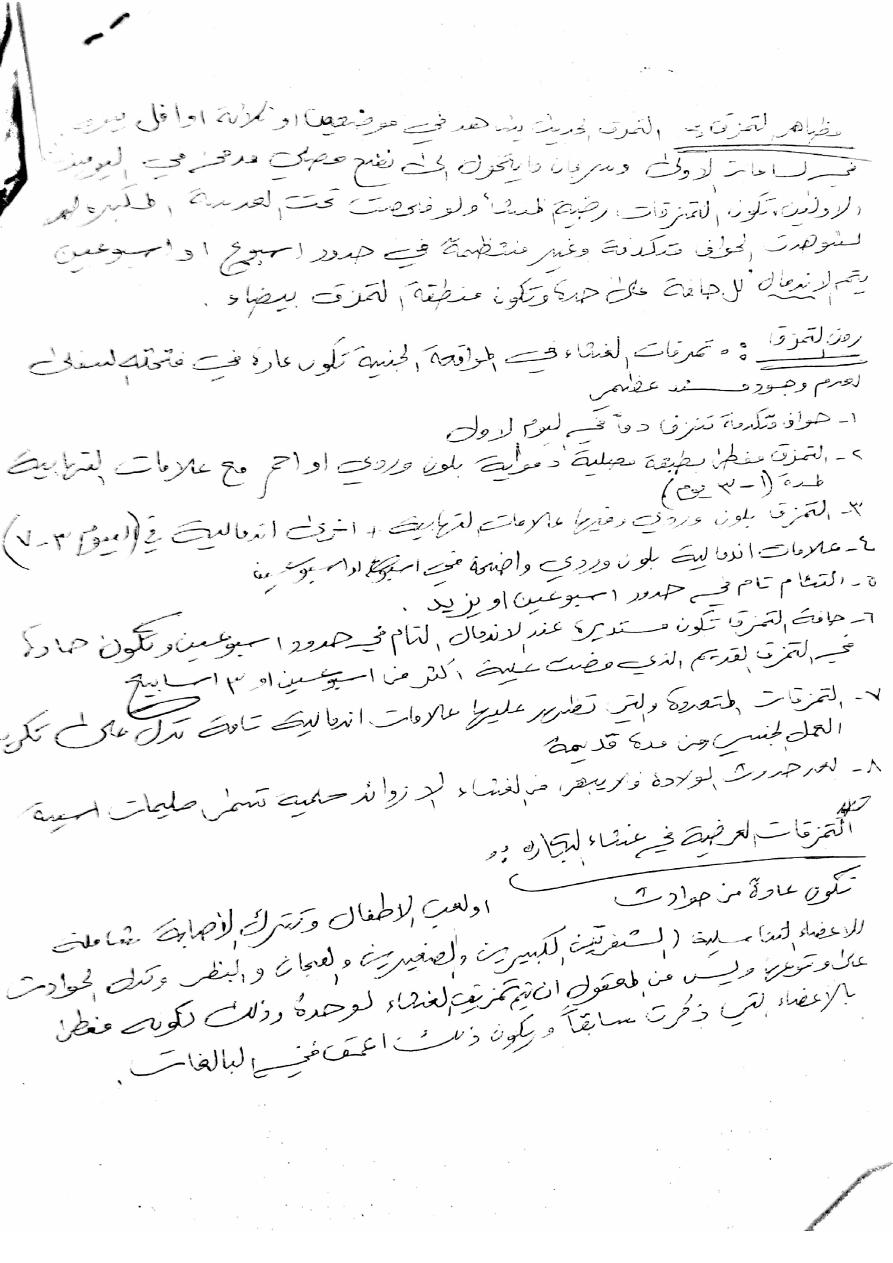 مظاهر التمزق :- التمزق الحديث يشاهد في موضعين او ثلاثة او اقل ينزف
في الساعات الاولى وسرعان ما يتحول الى نضح مصلي مدمى في اليومين
الاولين، تكون التمزقات رضية المنشأ ولو فحصت تحت العدسة المكبرة
لشوهدت الحواف متكدمة وغير منتظمة في حدود اسبوع او اسبوعين
يتم الاندمال لكل حافة على حدة وتكون منطقة التمزق بيضاء .
زمن التمزق :- تمزقات الغشاء في المواقعة الجنسية تكون عادة في فتحته السفلى
لعدم وجود مسند عظمي
١- حواف متكدمة تنزف دماً في اليوم الاول
٢- التمزق مغطى بطبقة مصلية دموية بلون وردي او احمر مع علامات التهابية
لمدة (١-٣ يوم)
٣- التمزق بلون وردي وفيها علامات التهابية + اخرى اندمالية في (اليوم ٣-٧)
٤- علامات اندمالية بلون وردي واضحة في اسبوع او اسبوعين
٥- التئام تام في حدود اسبوعين او يزيد .
٦- حافة التمزق تكون مستديرة عند الاندمال التام في حدود اسبوعين وتكون حادة
في التمزق القديم الذي مضت عليه اكثر من اسبوعين او ٣ اسابيع
٧- التمزقات المتعددة والتي تظهر عليها علامات اندمالية تامة تدل على تكرر
العمل الجنسي ومن مدة قديمة
٨- بعد حدوث الولادة ولا يبقى من الغشاء الا زوائد حلمية تسمى حليمات آسية
التمزقات العرضية في غشاء البكارة :-
تكون عادة من حوادث او لعب الاطفال وتترك الأصابة شاملة
للاعضاء التناسلية (الشفرتين الكبيرين والصغيرين والعجان والبظر وتدل الحوادث
على وقوعها وليس من المعقول ان يتم تمزيق الغشاء لوحده وذلك لكونه مغطى
بالأعضاء التي ذكرت سابقاً ويكون ذلك اعمق في البالغات .